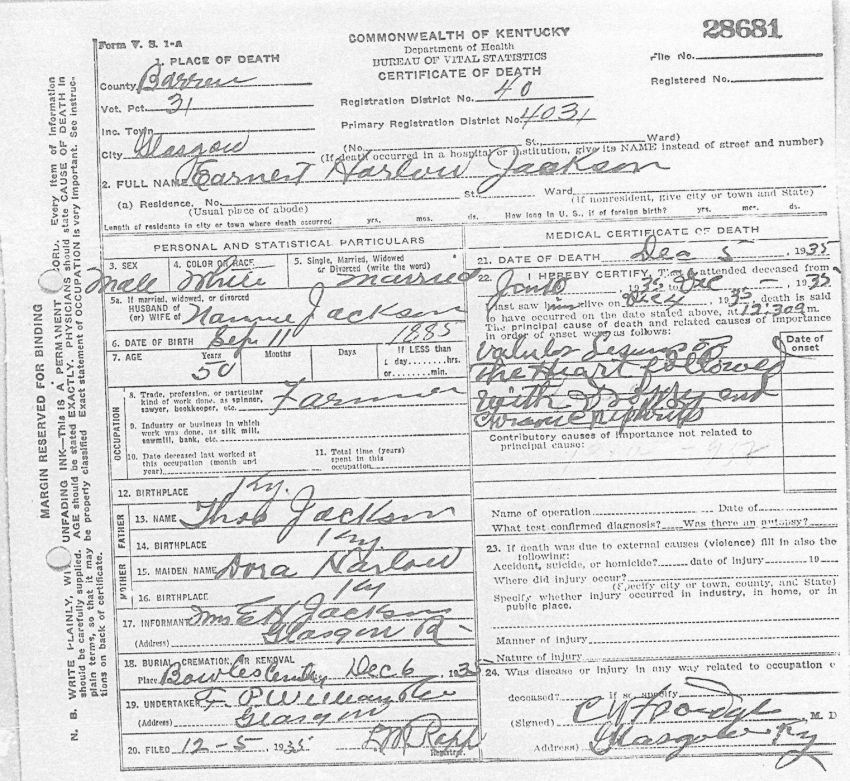 28681
Form V. S. 1-A
COMMONWEALTH OF KENTUCKY
Department of Health
BUREAU OF VITAL STATISTICS
CERTIFICATE OF DEATH
File No.
Registered No.
1. PLACE OF DEATH
County Barren
Vot. Pct. 31
Inc. Town
City Glasgow
Registration District No. 40
Primary Registration District No. 4031
(No. St., Ward)
(If death occurred in a hospital or institution, give its NAME instead of street and number)
2. FULL NAME Earnest Harlow Jackson
(a) Residence. No. St., Ward.
(Usual place of abode) (If nonresident, give city or town and State)
Length of residents in city or town where death occurred yrs. mos. ds. How long in U. S., if of foreign birth? yrs. mos. ds.
PERSONAL AND STATISTICAL PARTICULARS
3. SEX 4. COLOR OR RACE 5. Single, Married, Widowed
or Divorced (write the word)
Male White Married
5a. If married, widowed, or divorced
HUSBAND of
(or) WIFE of Nannie Jackson
6. DATE OF BIRTH Sep 11 1885
7. AGE Years Months Days If LESS than
50 1 day, hrs.
or min.
OCCUPATION
8. Trade, profession, or particular
kind of work done, as spinner,
sawyer, bookkeeper, etc. Farmer
9. Industry or business in which
work was done, as silk mill,
sawmill, bank, etc.
10. Date deceased last worked at
this occupation (month and
year)
11. Total time (years)
spent in this
occupation
12. BIRTHPLACE Ky.
FATHER
13. NAME Thos Jackson
14. BIRTHPLACE Ky.
MOTHER
15. MAIDEN NAME Dora Harlow
16. BIRTHPLACE Ky
17. INFORMANT Mrs E H Jackson
(Address) Glasgow R-
18. BURIAL, CREMATION, OR REMOVAL
Place Bowles Dec 6, 1935
19. UNDERTAKER F. P.
(Address) Glasgow
20. FILED 12-5, 1935
Registrar.
MEDICAL CERTIFICATE OF DEATH
21. DATE OF DEATH Dec 5, 1935
22. I HEREBY CERTIFY, That I attended deceased from
1935 to Dec - , 1935
I last saw him alive on Dec 4, 1935, death is said
to have occurred on the date stated above, at 12:30a m.
The principal cause of death and related causes of importance
in order of onset were as follows:
Date of
onset
the Heart followed
with Dropsy and
Chronic Nephritis
Contributory causes of importance not related to
principal cause:
Name of operation Date of
What test confirmed diagnosis? Was there an autopsy?
23. If death was due to external causes (violence) fill in also the
following:
Accident, suicide, or homicide? date of injury 19
Where did injury occur?
(Specify city or town, county, and State)
Specify whether injury occurred in industry, in home, or in
public place.
Manner of injury
Nature of injury
24. Was disease or injury in any way related to occupation o
deceased? If so, specify
(Signed) M. D
Address) Glasgow Ky
MARGIN RESERVED FOR BINDING
N. B. WRITE PLAINLY, WI UNFADING INK—This is A PERMANENT CORD. Every item of information
should be carefully supplied. AGE should be stated EXACTLY. PHYSICIANS should state CAUSE OF DEATH in
plain terms, so that it may be properly classified. Exact statement of OCCUPATION is very important. See instruc-
tions on back of certificate.